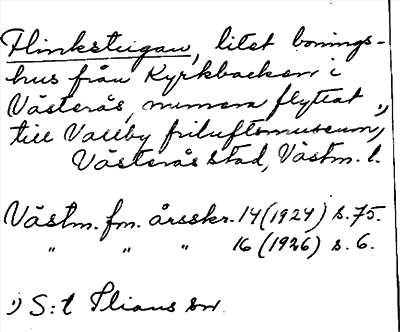 Flinkstugan, litet bonings-
hus från Kyrkbacken i
Västerås, numera flyttat
till Vallby friluftsmuseum, ¹)
Västerås stad, Västm. l.
Västm. fm. årsskr. 14 (1924) s. 75.
" " " 16 (1926) s. 6.
¹) S:t Ilians sn.